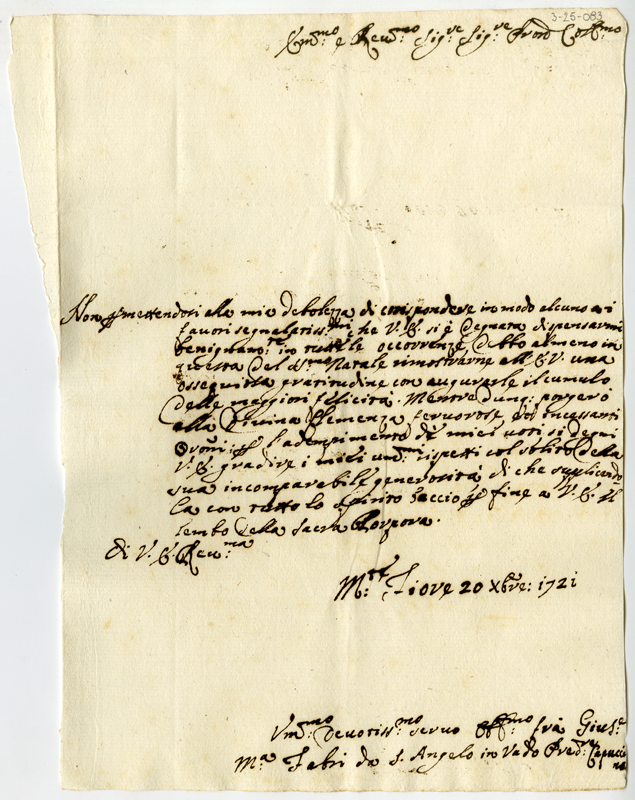 3-25-083
Em:mo e Reu:mo Sig:re Sig:re Pron Col:mo
Non permettendosi alla mia debolezza di corrispondere in modo alcuno a i
favori segnalatiss:mi che V. E. si è degnata dispensarmi
benignam:te in tutte le occorrenze debbo almeno in
questa del S:mo Natale rimostrarne all' E. V. una
ossequiosa gratitudine con augurarle il cumulo
delle maggiori felicità. Mentre dunq: porgerò
alla Divina Clemenza fervorose ed incessanti
oraõni per l'adempimento de miei voti si degni
V. E. gradire i miei um:mi rispetti col solito della
sua incomparabile generosità di che suplicando
la con tutto lo spirito baccio per fine a V. E. il
lembo della Sacra Porpora.
di V. E. Reu:ma
M:te Fiore 20 Xbre: 1721
Um:mo Devotiss:mo servo Obb:mo frà Gius:e
M:a Fabri da S. Angelo in Vado Pred:e Capucci
no